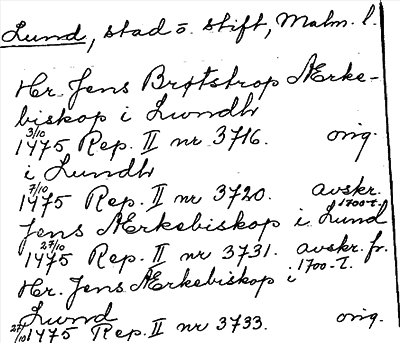 Lund, stad o. stift, Malm. l.
Hr. Jens Brostrop Ærke-
biskop i Lwndh
3/10
1475 Rep. II nr 3716. orig.
i Lundh
7/10
1475 Rep. II nr 3720. avskr. 1700-t.
Jens Ærkebiskop i Lund
27/10
1475 Rep. II nr 3731. avskr. fr. 1700-t.
Hr. Jens Ærkebiskop i
Lund
27/10 1475 Rep. II nr 3733. orig.